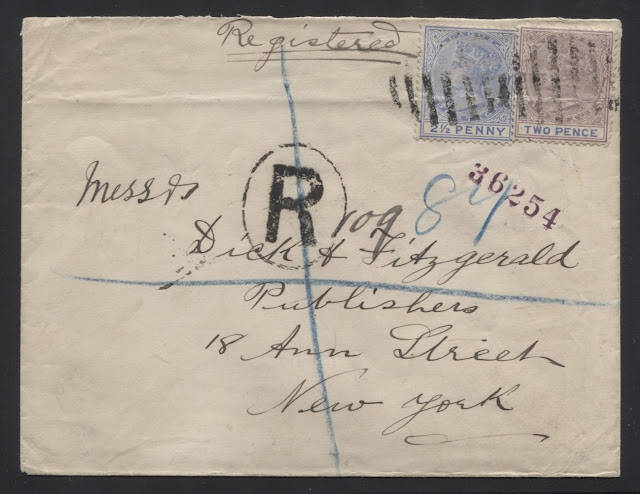 Registered
2½ PENNY TWO PENCE
36254
Messrs
R 109 84
Dick & Fitzgerald
Publishers
18 Ann Street
New York